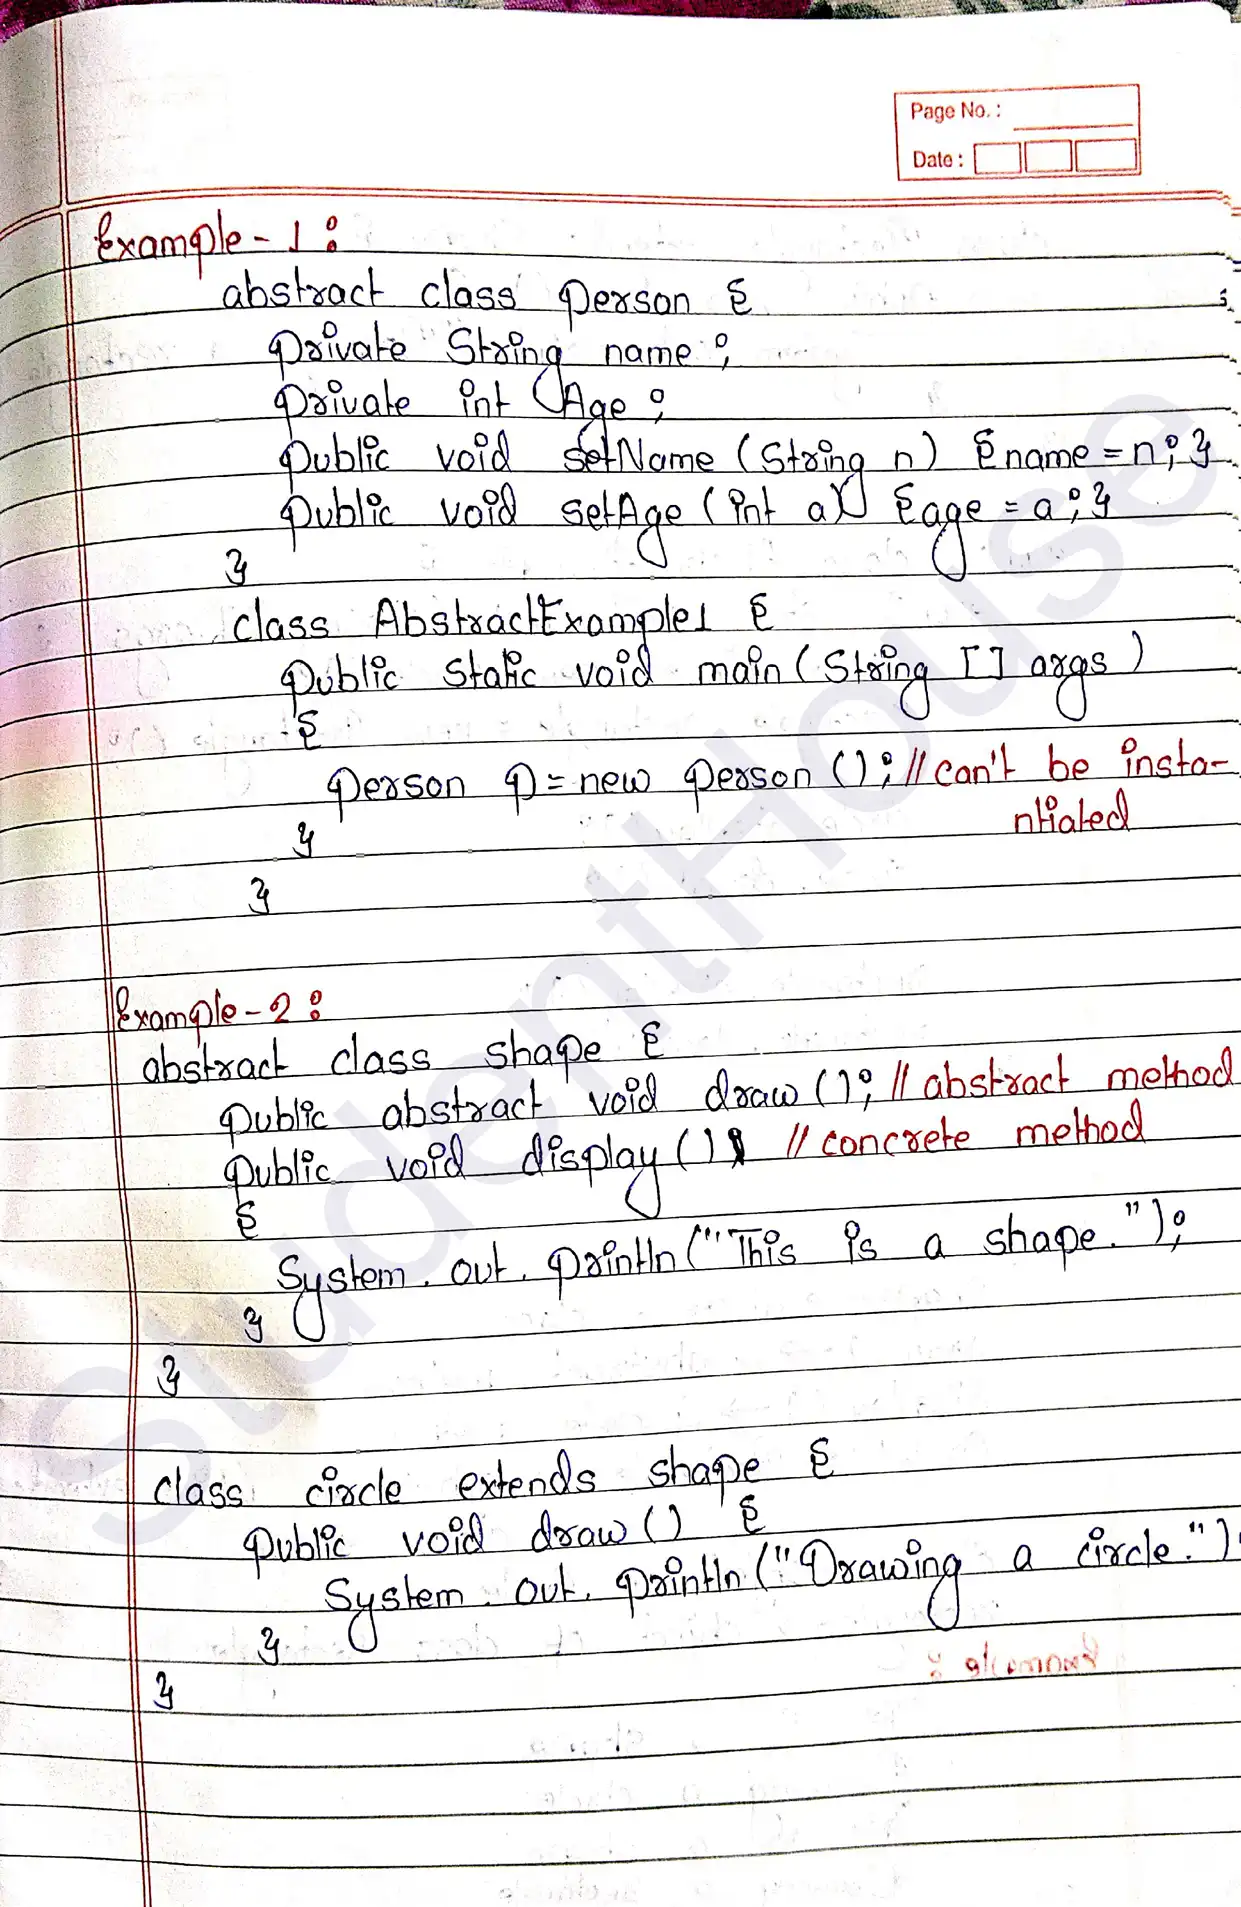 Page No. :
Date :
Example-1 :
abstract class person {
private String name ;
private int Age ;
public void setName (String n) { name = n ; }
public void setAge (int a) { age = a ; }
}
class AbstractExample1 {
public static void main (String [] args )
{
person p = new person () ; // can't be insta-
ntiated
}
}
Example-2 :
abstract class shape {
public abstract void draw () ; // abstract method
public void display () // concrete method
{
System . out . println ("This is a shape . ") ;
}
}
class circle extends shape {
public void draw () {
System . out . println ("Drawing a circle.")
}
}
StudentHouse